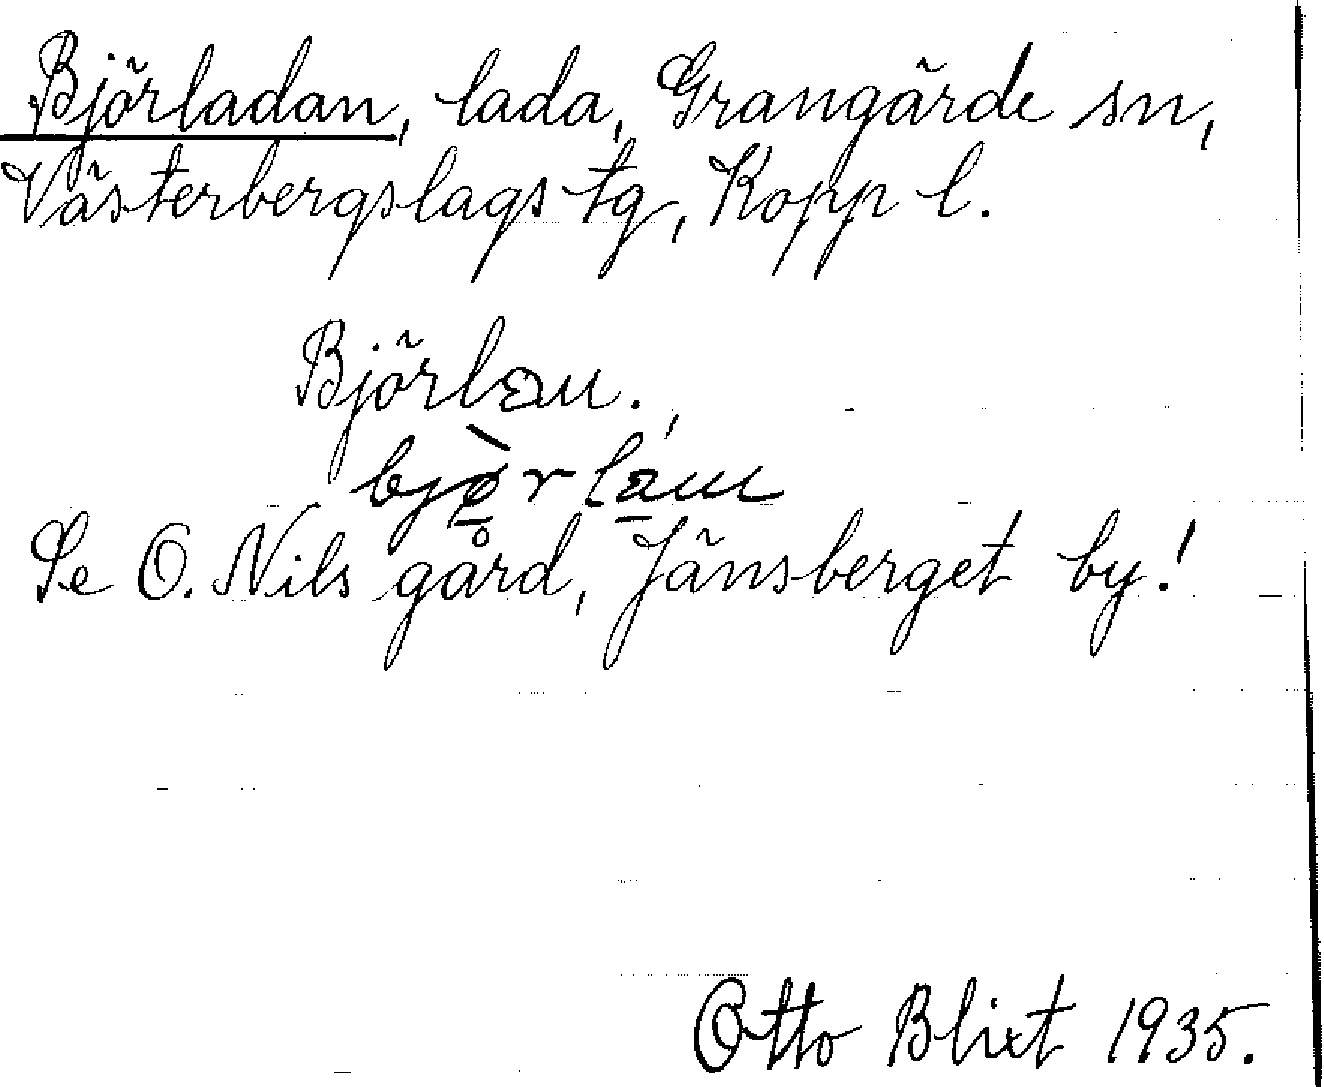 Björladan, lada, Grangärde sn,
Västerbergslags tg, Kopp l.
Björlan.
Se O. Nils gård, Jänsberget by!
Otto Blixt 1935.